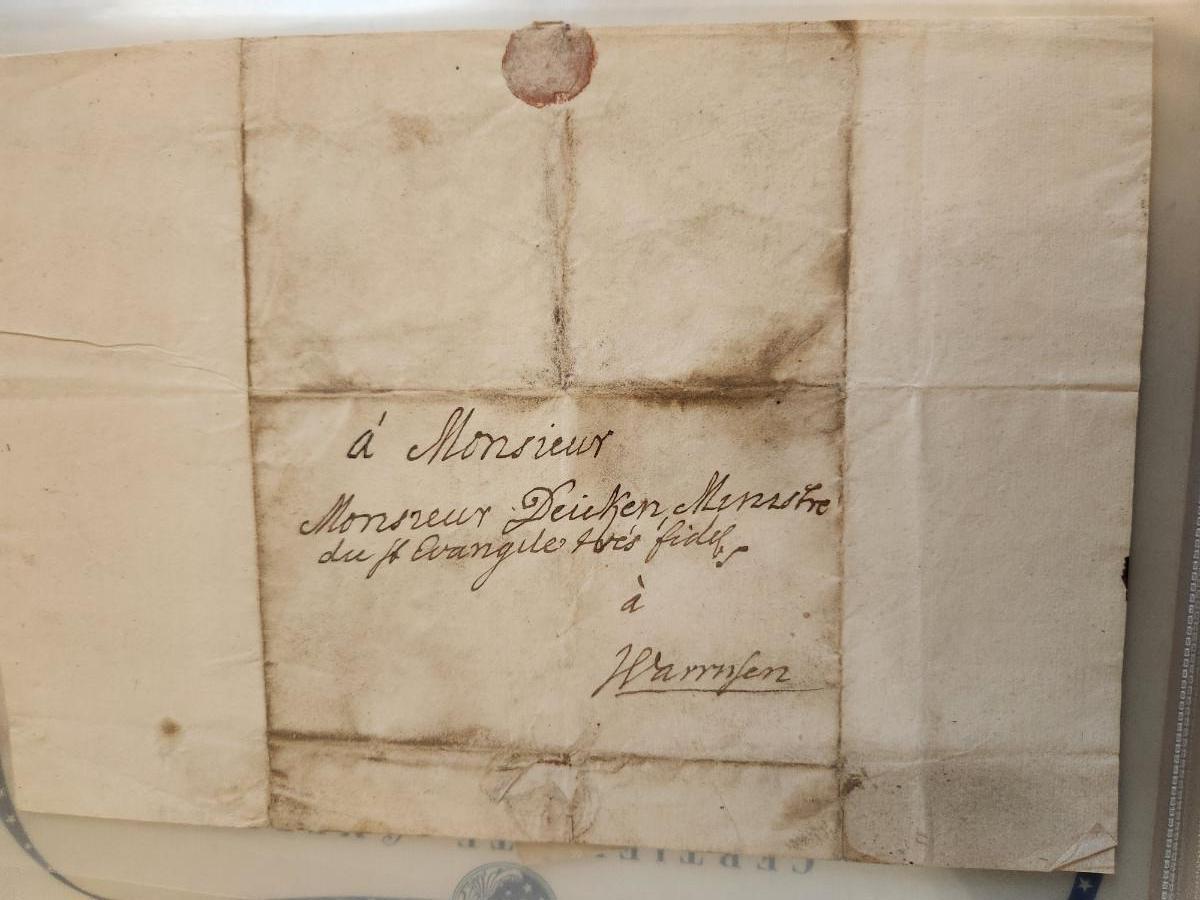 á Monsieur
Monsieur Deicken, Ministre
du st Evangile trés fidel
à